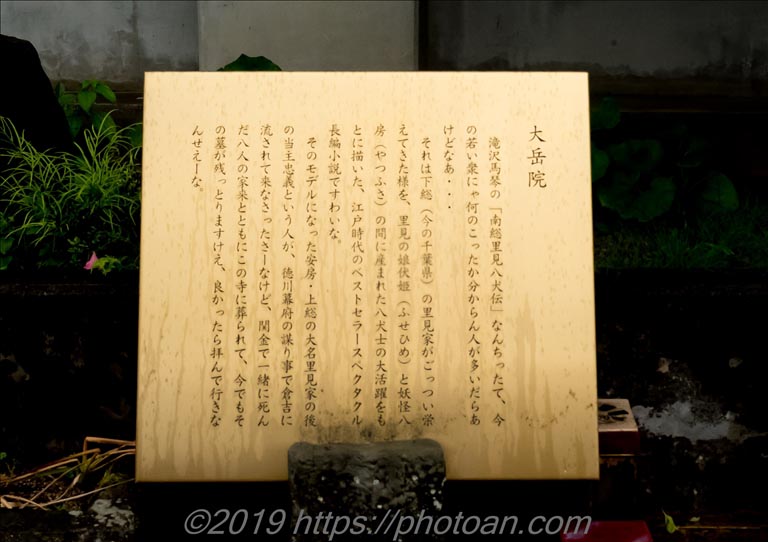 大岳院
滝沢馬琴の「南総里見八犬伝」なんちったて、今
の若い衆にゃ何のこったか分からん人が多いだらあ
けどなあ・・・
それは下総（今の千葉県）の里見家がごっつい栄
えてきた様を、里見の娘伏姫（ふせひめ）と妖怪八
房（やつふさ）の間に産まれた八犬士の大活躍をも
とに描いた、江戸時代のベストセラースペクタクル
長編小説ですわいな。
そのモデルになった安房・上総の大名里見家の後
の当主忠義という人が、徳川幕府の謀り事で倉吉に
流されて来なさったさーなけど、関金で一緒に死ん
だ八人の家来とともにこの寺に葬られて、今でもそ
の墓が残っとりますけえ、良かったら拝んで行きな
んせえーな。
©2019 https://photoan.com